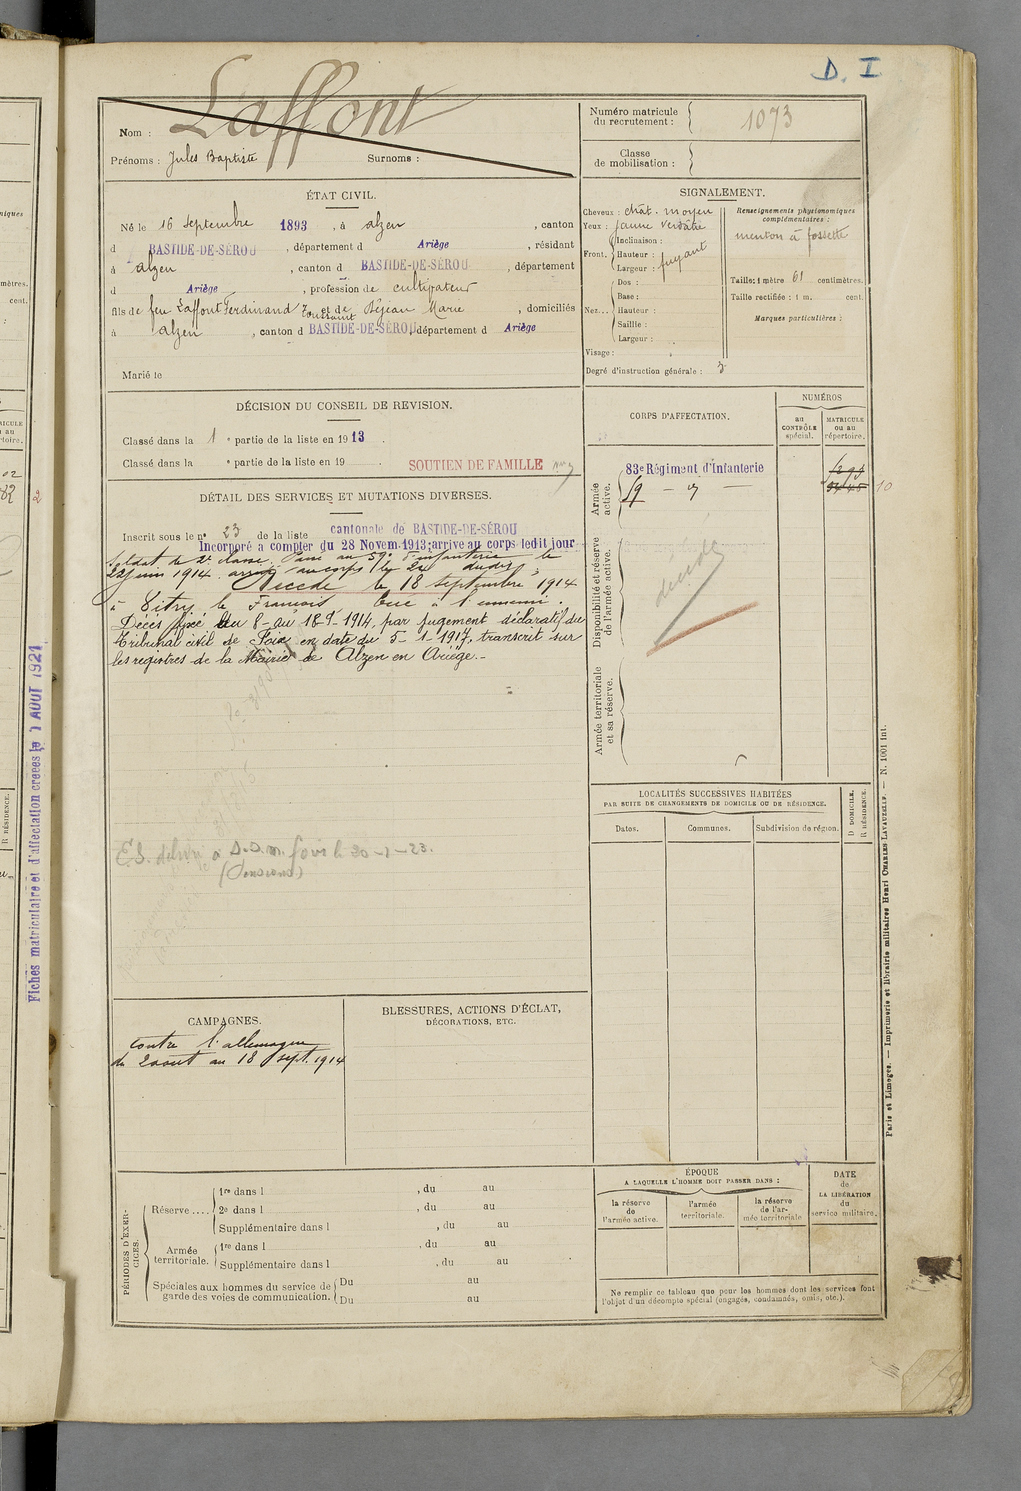 D. I
Nom : Laffont
Prénoms : Jules Baptiste Surnoms :
Numéro matricule du recrutement : 1073
Classe de mobilisation :
ÉTAT CIVIL.
Né le 16 Septembre 1893, à alzen, canton
d BASTIDE-DE-SÉROU, département d Ariège, résidant
à alzen, canton d BASTIDE-DE-SÉROU, département
d Ariège, profession de cultivateur
fils de feu Laffont Ferdinand Toussaint et de Séjean Marie, domiciliés
à alzen, canton d BASTIDE-DE-SÉROU, département d Ariège
Marié le
SIGNALEMENT.
Cheveux : chât. moyen
Yeux : jaune verdâtre
Front. Inclinaison :
Hauteur : fuyant
Largeur :
Nez... Dos :
Base :
Hauteur :
Saillie :
Largeur :
Visage :
Renseignements physionomiques complémentaires :
menton à fossette
Taille : 1 mètre 61 centimètres.
Taille rectifiée : 1 m. cent.
Marques particulières :
Degré d'instruction générale : 3
DÉCISION DU CONSEIL DE REVISION.
Classé dans la 1e partie de la liste en 1913
Classé dans la e partie de la liste en 19 .
SOUTIEN DE FAMILLE
DÉTAIL DES SERVICES ET MUTATIONS DIVERSES.
Inscrit sous le no 23 de la liste cantonale de BASTIDE-DE-SÉROU
Incorporé à compter du 28 Novem. 1913; arrivé au corps ledit jour
soldat de 2e classe. Passé au 59e d'infanterie le
22 juin 1914, arrivé au corps le 22 dudit.
Décédé le 18 septembre 1914
à Vitry le François, tué à l'ennemi.
Décès fixé du 8 au 18-9-1914, par jugement déclaratif du
Tribunal civil de Foix en date du 5-1-1917, transcrit sur
les registres de la Mairie de Alzen en Ariège.-
E.S. délivré à D.D.M. Foix le 30-1-23.
(Pensions)
CORPS D'AFFECTATION.
NUMÉROS
au CONTRÔLE spécial.
MATRICULE ou au répertoire.
Armée active.
83e Régiment d'Infanterie
59 - " -
Disponibilité et réserve de l'armée active.
décédé
Armée territoriale et sa réserve.
LOCALITÉS SUCCESSIVES HABITÉES
PAR SUITE DE CHANGEMENTS DE DOMICILE OU DE RÉSIDENCE.
Dates.
Communes.
Subdivision de région.
D DOMICILE.
R RÉSIDENCE.
CAMPAGNES.
contre l'allemagne
du 2 aout au 18 sept. 1914
BLESSURES, ACTIONS D'ÉCLAT,
DÉCORATIONS, ETC.
PÉRIODES D'EXERCICES.
Réserve .... 1re dans l , du au
2e dans l , du au
Supplémentaire dans l , du au
Armée territoriale. 1re dans l , du au
Supplémentaire dans l , du au
Spéciales aux hommes du service de garde des voies de communication. Du au
Du au
ÉPOQUE
A LAQUELLE L'HOMME DOIT PASSER DANS :
la réserve de l'armée active.
l'armée territoriale.
la réserve de l'armée territoriale
DATE de LA LIBÉRATION du service militaire.
Ne remplir ce tableau que pour les hommes dont les services font
l'objet d'un décompte spécial (engagés, condamnés, omis, etc.).
Paris et Limoges. — Imprimerie et librairie militaires Henri CHARLES-LAVAUZELLE. — N. 1001 int.
Fiches matriculaire et d'affectation créées le 1 AOUT 1921